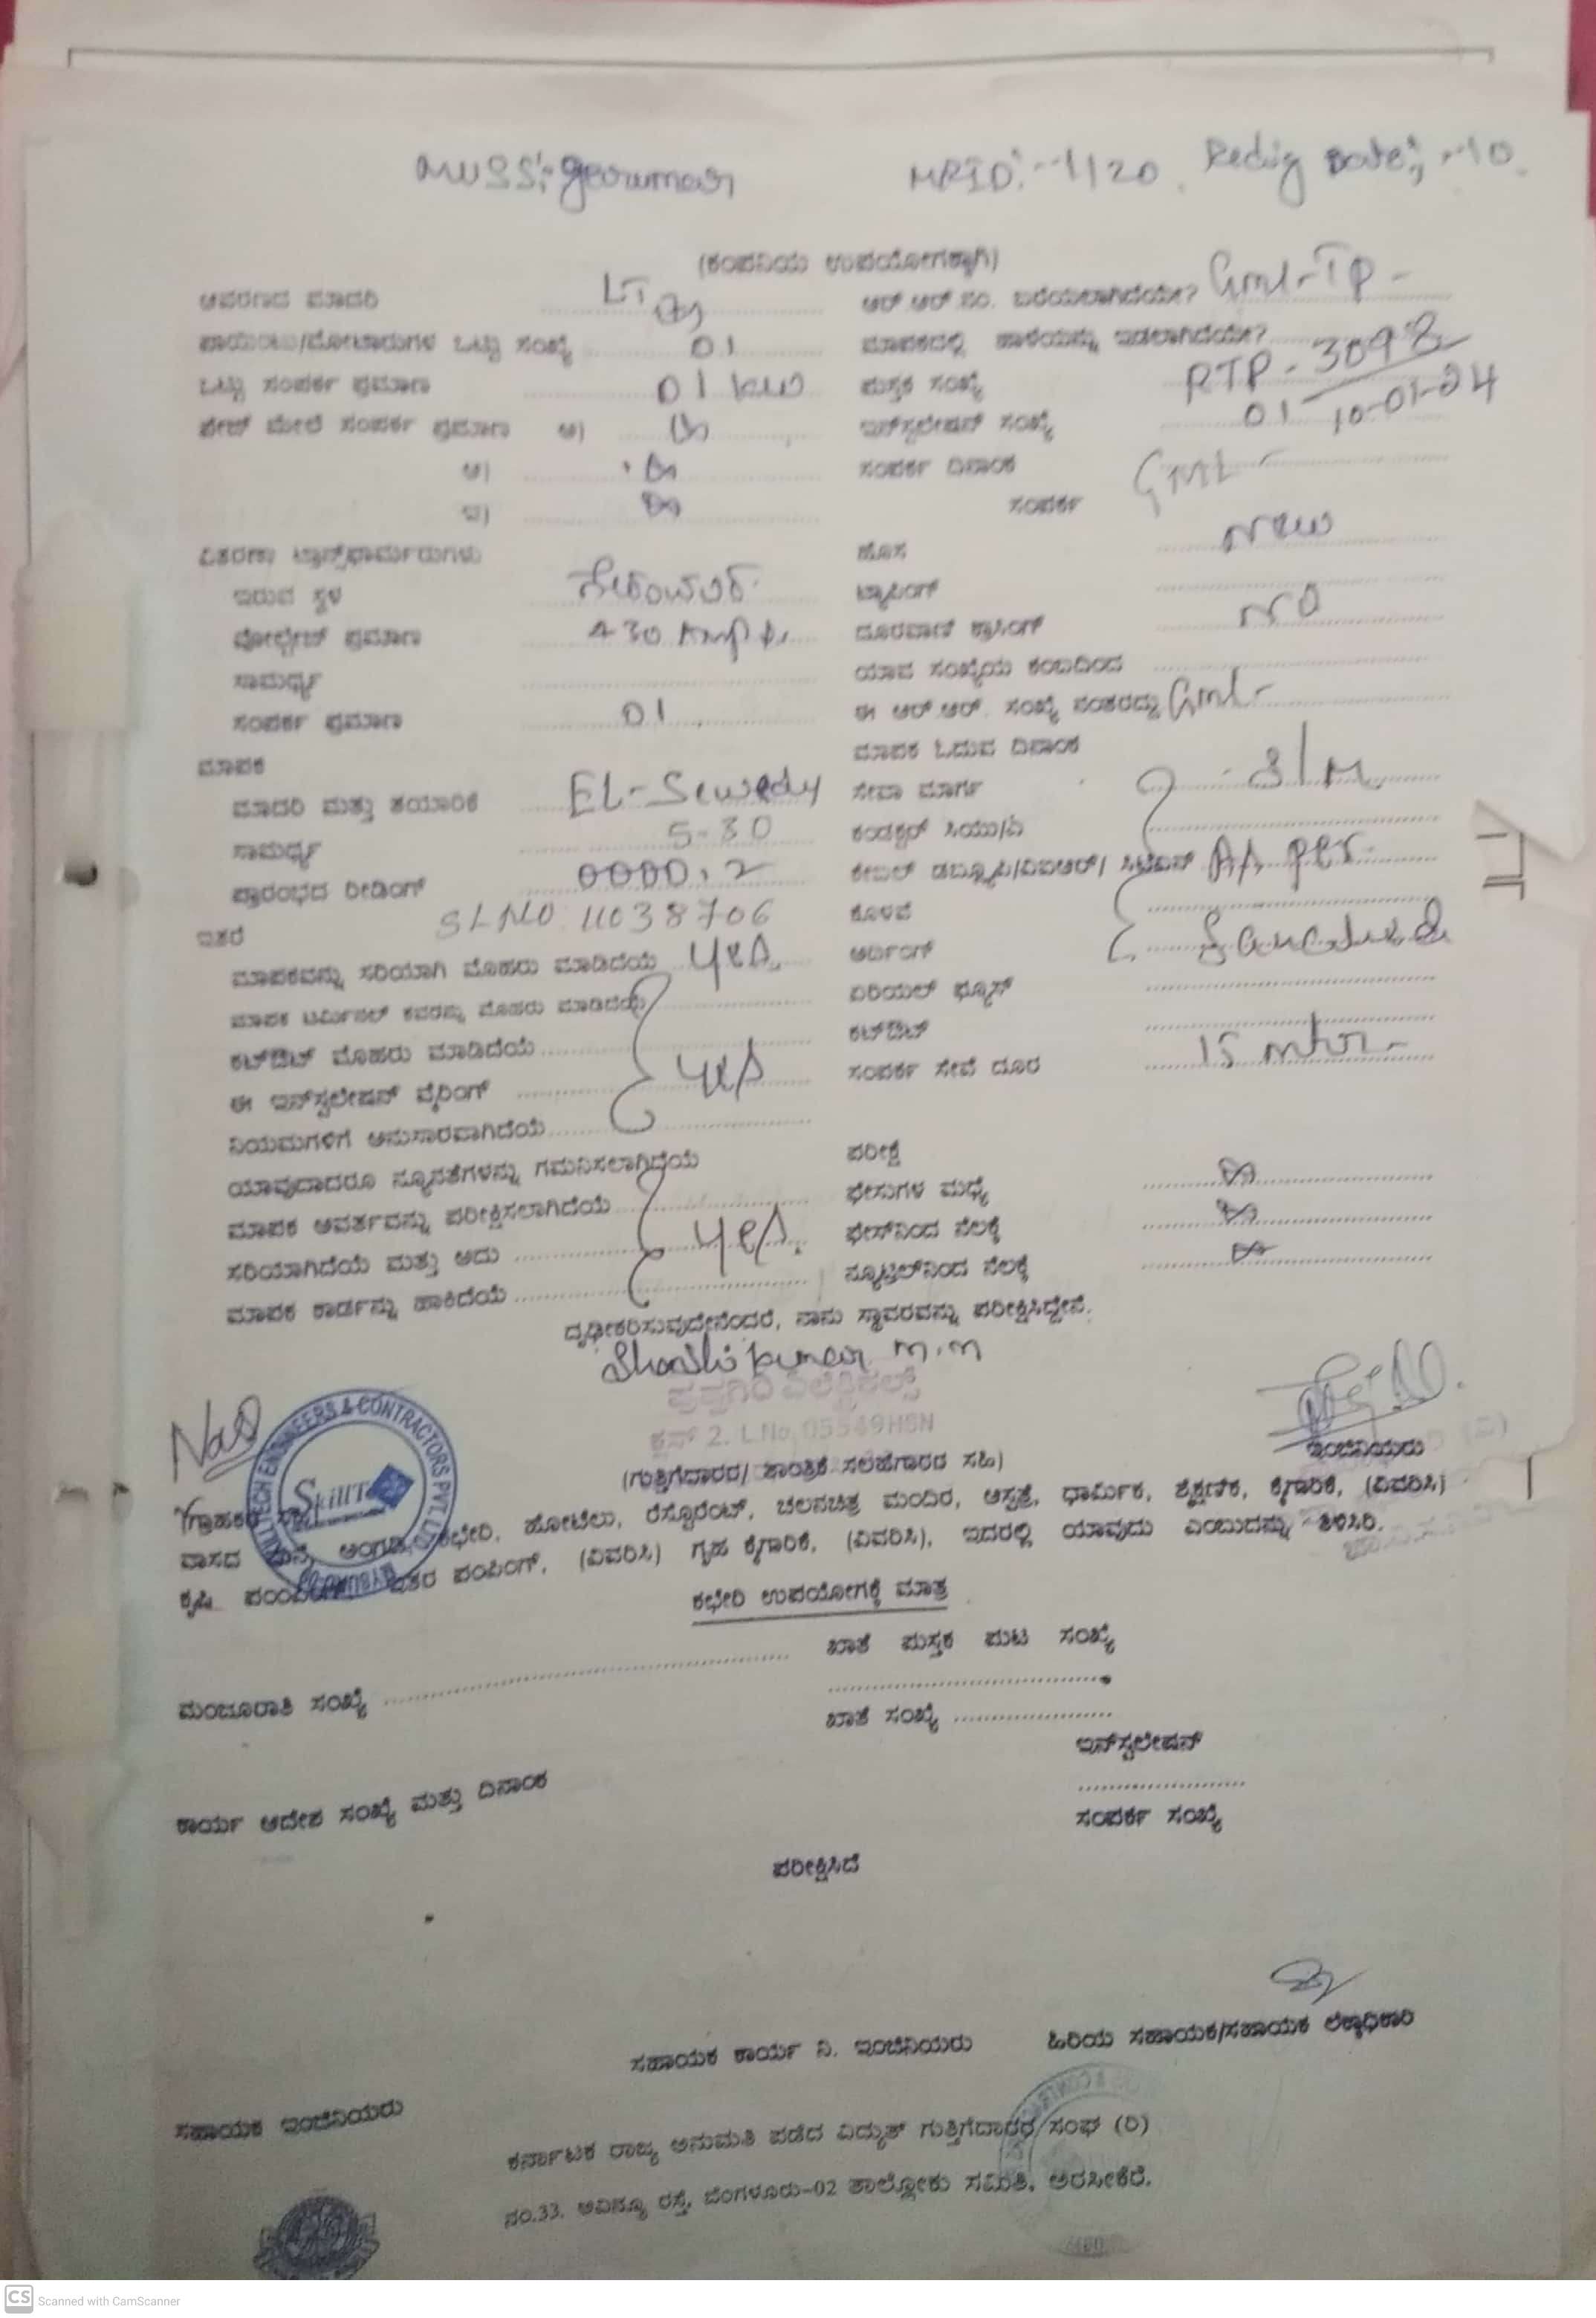 MUSS:- Gerumar MRID:- 1120 Redig Date:- 10
(ಕಂಪನಿಯ ಉಪಯೋಗಕ್ಕಾಗಿ)
ಆವರಣದ ಮಾದರಿ LT ಆರ್.ಆರ್.ನಂ. ಬರೆಯಲಾಗಿದೆಯೇ? Gml-TP-
ಪಾಯಿಂಟು/ಮೋಟಾರುಗಳ ಒಟ್ಟು ಸಂಖ್ಯೆ 01 ಮಾಪಕದಲ್ಲಿ ಹಾಳೆಯನ್ನು ಇಡಲಾಗಿದೆಯೇ?
ಒಟ್ಟು ಸಂಪರ್ಕ ಪ್ರಮಾಣ 01 kw ಪುಸ್ತಕ ಸಂಖ್ಯೆ RTP-3098
ಫೇಸ್ ಮೇಲೆ ಸಂಪರ್ಕ ಪ್ರಮಾಣ ಅ) ಇನ್‌ಸ್ಟಲೇಷನ್ ಸಂಖ್ಯೆ 01 10-01-24
ಆ) ಸಂಪರ್ಕ ದಿನಾಂಕ GML-
ಇ) ಸಂಪರ್ಕ
ವಿತರಣಾ ಟ್ರಾನ್ಸ್‌ಫಾರ್ಮರುಗಳು ಹೊಸ New
ಇರುವ ಸ್ಥಳ ಟ್ಯಾಪಿಂಗ್
ವೋಲ್ಟೇಜ್ ಪ್ರಮಾಣ 430 Amps ದೂರವಾಣಿ ಕ್ರಾಸಿಂಗ್ NO
ಸಾಮರ್ಥ್ಯ ಯಾವ ಸಂಖ್ಯೆಯ ಕಂಬದಿಂದ
ಸಂಪರ್ಕ ಪ್ರಮಾಣ 01 ಈ ಆರ್.ಆರ್. ಸಂಖ್ಯೆ ನಂತರದ್ದು Gml-
ಮಾಪಕ ಮಾಪಕ ಓದುವ ದಿನಾಂಕ
ಮಾದರಿ ಮತ್ತು ತಯಾರಿಕೆ EL-Sewedy ಸೇವಾ ಮಾರ್ಗ S/M
ಸಾಮರ್ಥ್ಯ 5-30 ಕಂಡಕ್ಟರ್ ಸಿಯು/ಎ
ಪ್ರಾರಂಭದ ರೀಡಿಂಗ್ 0000.2 ಕೇಬಲ್ As per
ಇತರೆ SLNO 11038706 ಕೊಳವೆ
ಮಾಪಕವನ್ನು ಸರಿಯಾಗಿ ಮೊಹರು ಮಾಡಿದೆಯೆ Yes ಅರ್ಥಿಂಗ್ Sanctined
ಮಾಪಕ ಟರ್ಮಿನಲ್ ಕವರನ್ನು ಮೊಹರು ಮಾಡಿದೆಯೆ ಏರಿಯಲ್ ಫ್ಯೂಸ್
ಕಟ್‌ಔಟ್ ಮೊಹರು ಮಾಡಿದೆಯೆ ಕಟ್‌ಔಟ್
ಈ ಇನ್‌ಸ್ಟಲೇಷನ್ ವೈರಿಂಗ್ Yes ಸಂಪರ್ಕ ಸೇವೆ ದೂರ 15 mtr-
ನಿಯಮಗಳಿಗೆ ಅನುಸಾರವಾಗಿದೆಯೆ
ಯಾವುದಾದರೂ ನ್ಯೂನತೆಗಳನ್ನು ಗಮನಿಸಲಾಗಿದೆಯೆ ಪರೀಕ್ಷೆ
ಮಾಪಕ ಆವರ್ತವನ್ನು ಪರೀಕ್ಷಿಸಲಾಗಿದೆಯೆ ಫೇಸುಗಳ ಮಧ್ಯೆ
ಸರಿಯಾಗಿದೆಯೆ ಮತ್ತು ಅದು Yes. ಫೇಸ್‌ನಿಂದ ನೆಲಕ್ಕೆ
ಮಾಪಕ ಕಾರ್ಡನ್ನು ಹಾಕಿದೆಯೆ ನ್ಯೂಟ್ರಲ್‌ನಿಂದ ನೆಲಕ್ಕೆ
ದೃಢೀಕರಿಸುವುದೇನೆಂದರೆ, ನಾನು ಸ್ಥಾವರವನ್ನು ಪರೀಕ್ಷಿಸಿದ್ದೇನೆ.
Shashi kumar M.M
ಎಲೆಕ್ಟ್ರಿಕಲ್ಸ್
2. L.No. 05549HSN
ಇಂಜಿನಿಯರು
(ಗುತ್ತಿಗೆದಾರರ/ ತಾಂತ್ರಿಕ ಸಲಹೆಗಾರರ ಸಹಿ)
ENGINEERS & CONTRACTORS PVT. LTD.
SkillTech
MYSURU
ಗ್ರಾಹಕರ
ವಾಸದ ಮನೆ, ಅಂಗಡಿ, ಕಛೇರಿ, ಹೋಟೆಲು, ರೆಸ್ಟೊರೆಂಟ್, ಚಲನಚಿತ್ರ ಮಂದಿರ, ಆಸ್ಪತ್ರೆ, ಧಾರ್ಮಿಕ, ಶೈಕ್ಷಣಿಕ, ಕೈಗಾರಿಕೆ, (ವಿವರಿಸಿ)
ಕೃಷಿ ಇತರ ಪಂಪಿಂಗ್, (ವಿವರಿಸಿ) ಗೃಹ ಕೈಗಾರಿಕೆ, (ವಿವರಿಸಿ), ಇದರಲ್ಲಿ ಯಾವುದು ಎಂಬುದನ್ನು ತಿಳಿಸಿರಿ.
ಕಛೇರಿ ಉಪಯೋಗಕ್ಕೆ ಮಾತ್ರ
ಖಾತೆ ಪುಸ್ತಕ ಪುಟ ಸಂಖ್ಯೆ
ಮಂಜೂರಾತಿ ಸಂಖ್ಯೆ
ಖಾತೆ ಸಂಖ್ಯೆ
ಇನ್‌ಸ್ಟಲೇಷನ್
ಕಾರ್ಯ ಆದೇಶ ಸಂಖ್ಯೆ ಮತ್ತು ದಿನಾಂಕ
ಸಂಪರ್ಕ ಸಂಖ್ಯೆ
ಪರೀಕ್ಷಿಸಿದೆ
ಸಹಾಯಕ ಕಾರ್ಯ ನಿ. ಇಂಜಿನಿಯರು ಹಿರಿಯ ಸಹಾಯಕ/ಸಹಾಯಕ ಲೆಕ್ಕಾಧಿಕಾರಿ
ಸಹಾಯಕ ಇಂಜಿನಿಯರು
ಕರ್ನಾಟಕ ರಾಜ್ಯ ಅನುಮತಿ ಪಡೆದ ವಿದ್ಯುತ್ ಗುತ್ತಿಗೆದಾರರ ಸಂಘ (ರಿ)
ನಂ.33. ಅವಿನ್ಯೂ ರಸ್ತೆ, ಬೆಂಗಳೂರು-02 ತಾಲ್ಲೋಕು ಸಮಿತಿ, ಅರಸೀಕೆರೆ.
CS Scanned with CamScanner